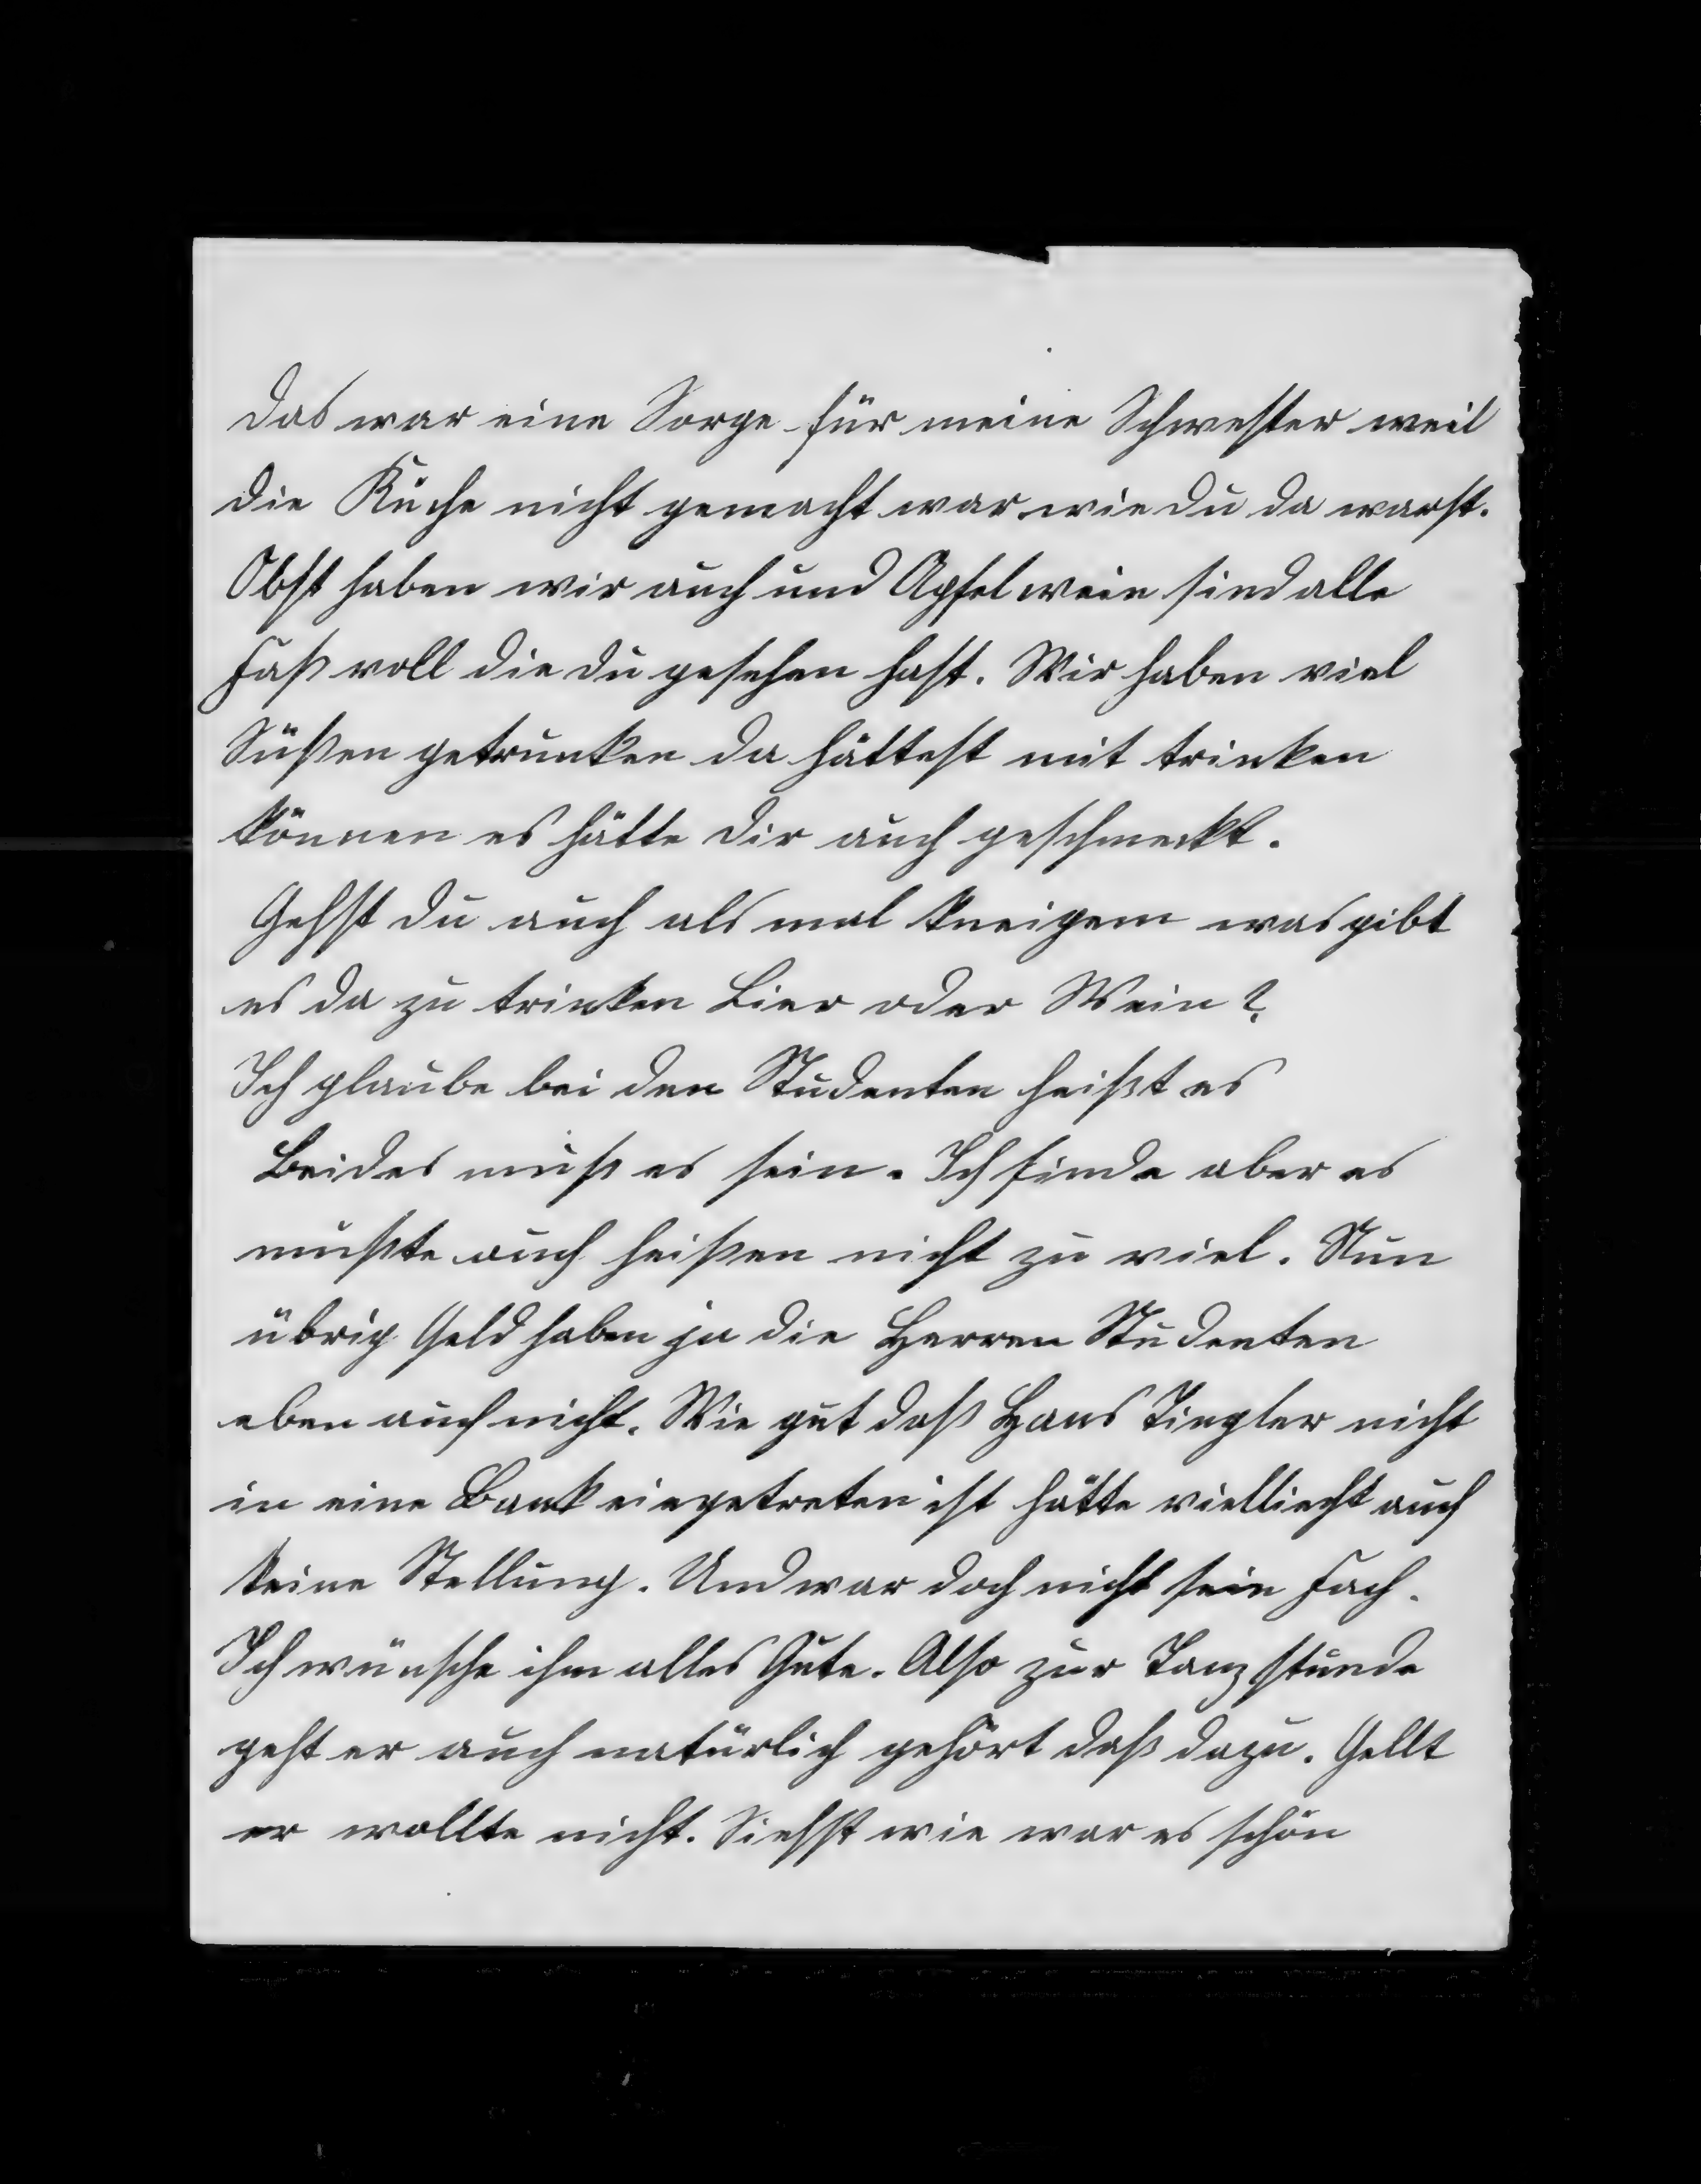 das war eine Sorge für meine Schwester weil
die Küche nicht gemacht war wie du da warst.
Obst haben wir auch und Apfelwein sind alle
Faß voll die du gesehen hast. Wir haben viel
Süßen getrunken da hättest mit trinken
können es hätte dir auch geschmeckt.
Gehst du auch als mal kneipen was gibt
es da zu trinken Bier oder Wein?
Ich glaube bei den Studenten heißt es
Beides muß es sein. Ich finde aber es
mußte auch heißen nicht zu viel. Nun
übrig Geld haben ja die Herren Studenten
eben auch nicht. Wie gut daß Hans Ziegler nicht
in eine Bank eingetreten ist hätte vielliecht auch
keine Stellung. Und war doch nicht sein Fach.
Ich wünsche ihm alles Gute. Also zur Tanzstunde
geht er auch natürlich gehört daß dazu. Gellt
er wollte nicht. Siehst wie war es schön